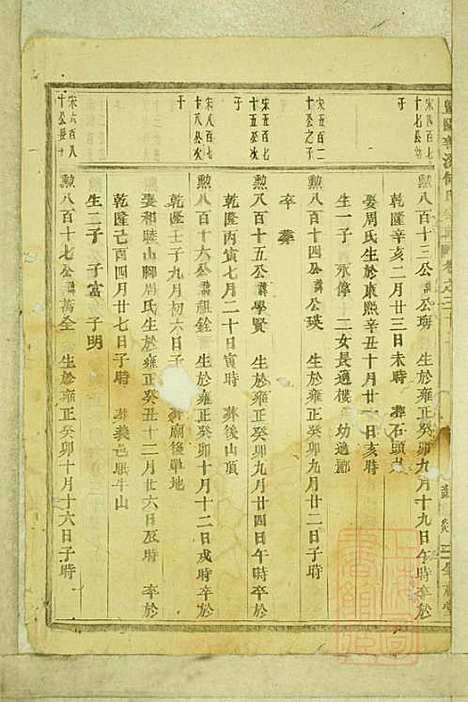 宋四百七
十七公幼
子
勲八百十三公諱公珣 生於雍正癸卯九月十九日午時卒於
乾隆辛亥二月廿三日未時 葬石頭
娶周氏生於康熙辛丑十月廿一日亥時
生一子 永倬 二女長適樓 幼適酈
宋五百二
十公之子
勲八百十四公諱公瑛 生於雍正癸卯九月廿二日
卒 葬
宋五百七
十五公次
子
勲八百十五公諱學賢 生於雍正癸卯九月廿四日午時卒於
乾隆丙寅七月二十日寅時 葬後山頂
宋八百七
十八公次
子
勲八百十六公諱祖銓 生於雍正癸卯十月十二日戌時卒於
乾隆壬子九月初六日子時 廟後單地
娶和睦山腳周氏生於雍正癸丑十二月廿六日辰時 卒於
乾隆己酉四月廿七日子時 葬義邑眠牛山
生二子 子富 子明
宋六百八
十公長子
勲八百十七公諱萬全 生於雍正癸卯十月十六日子時